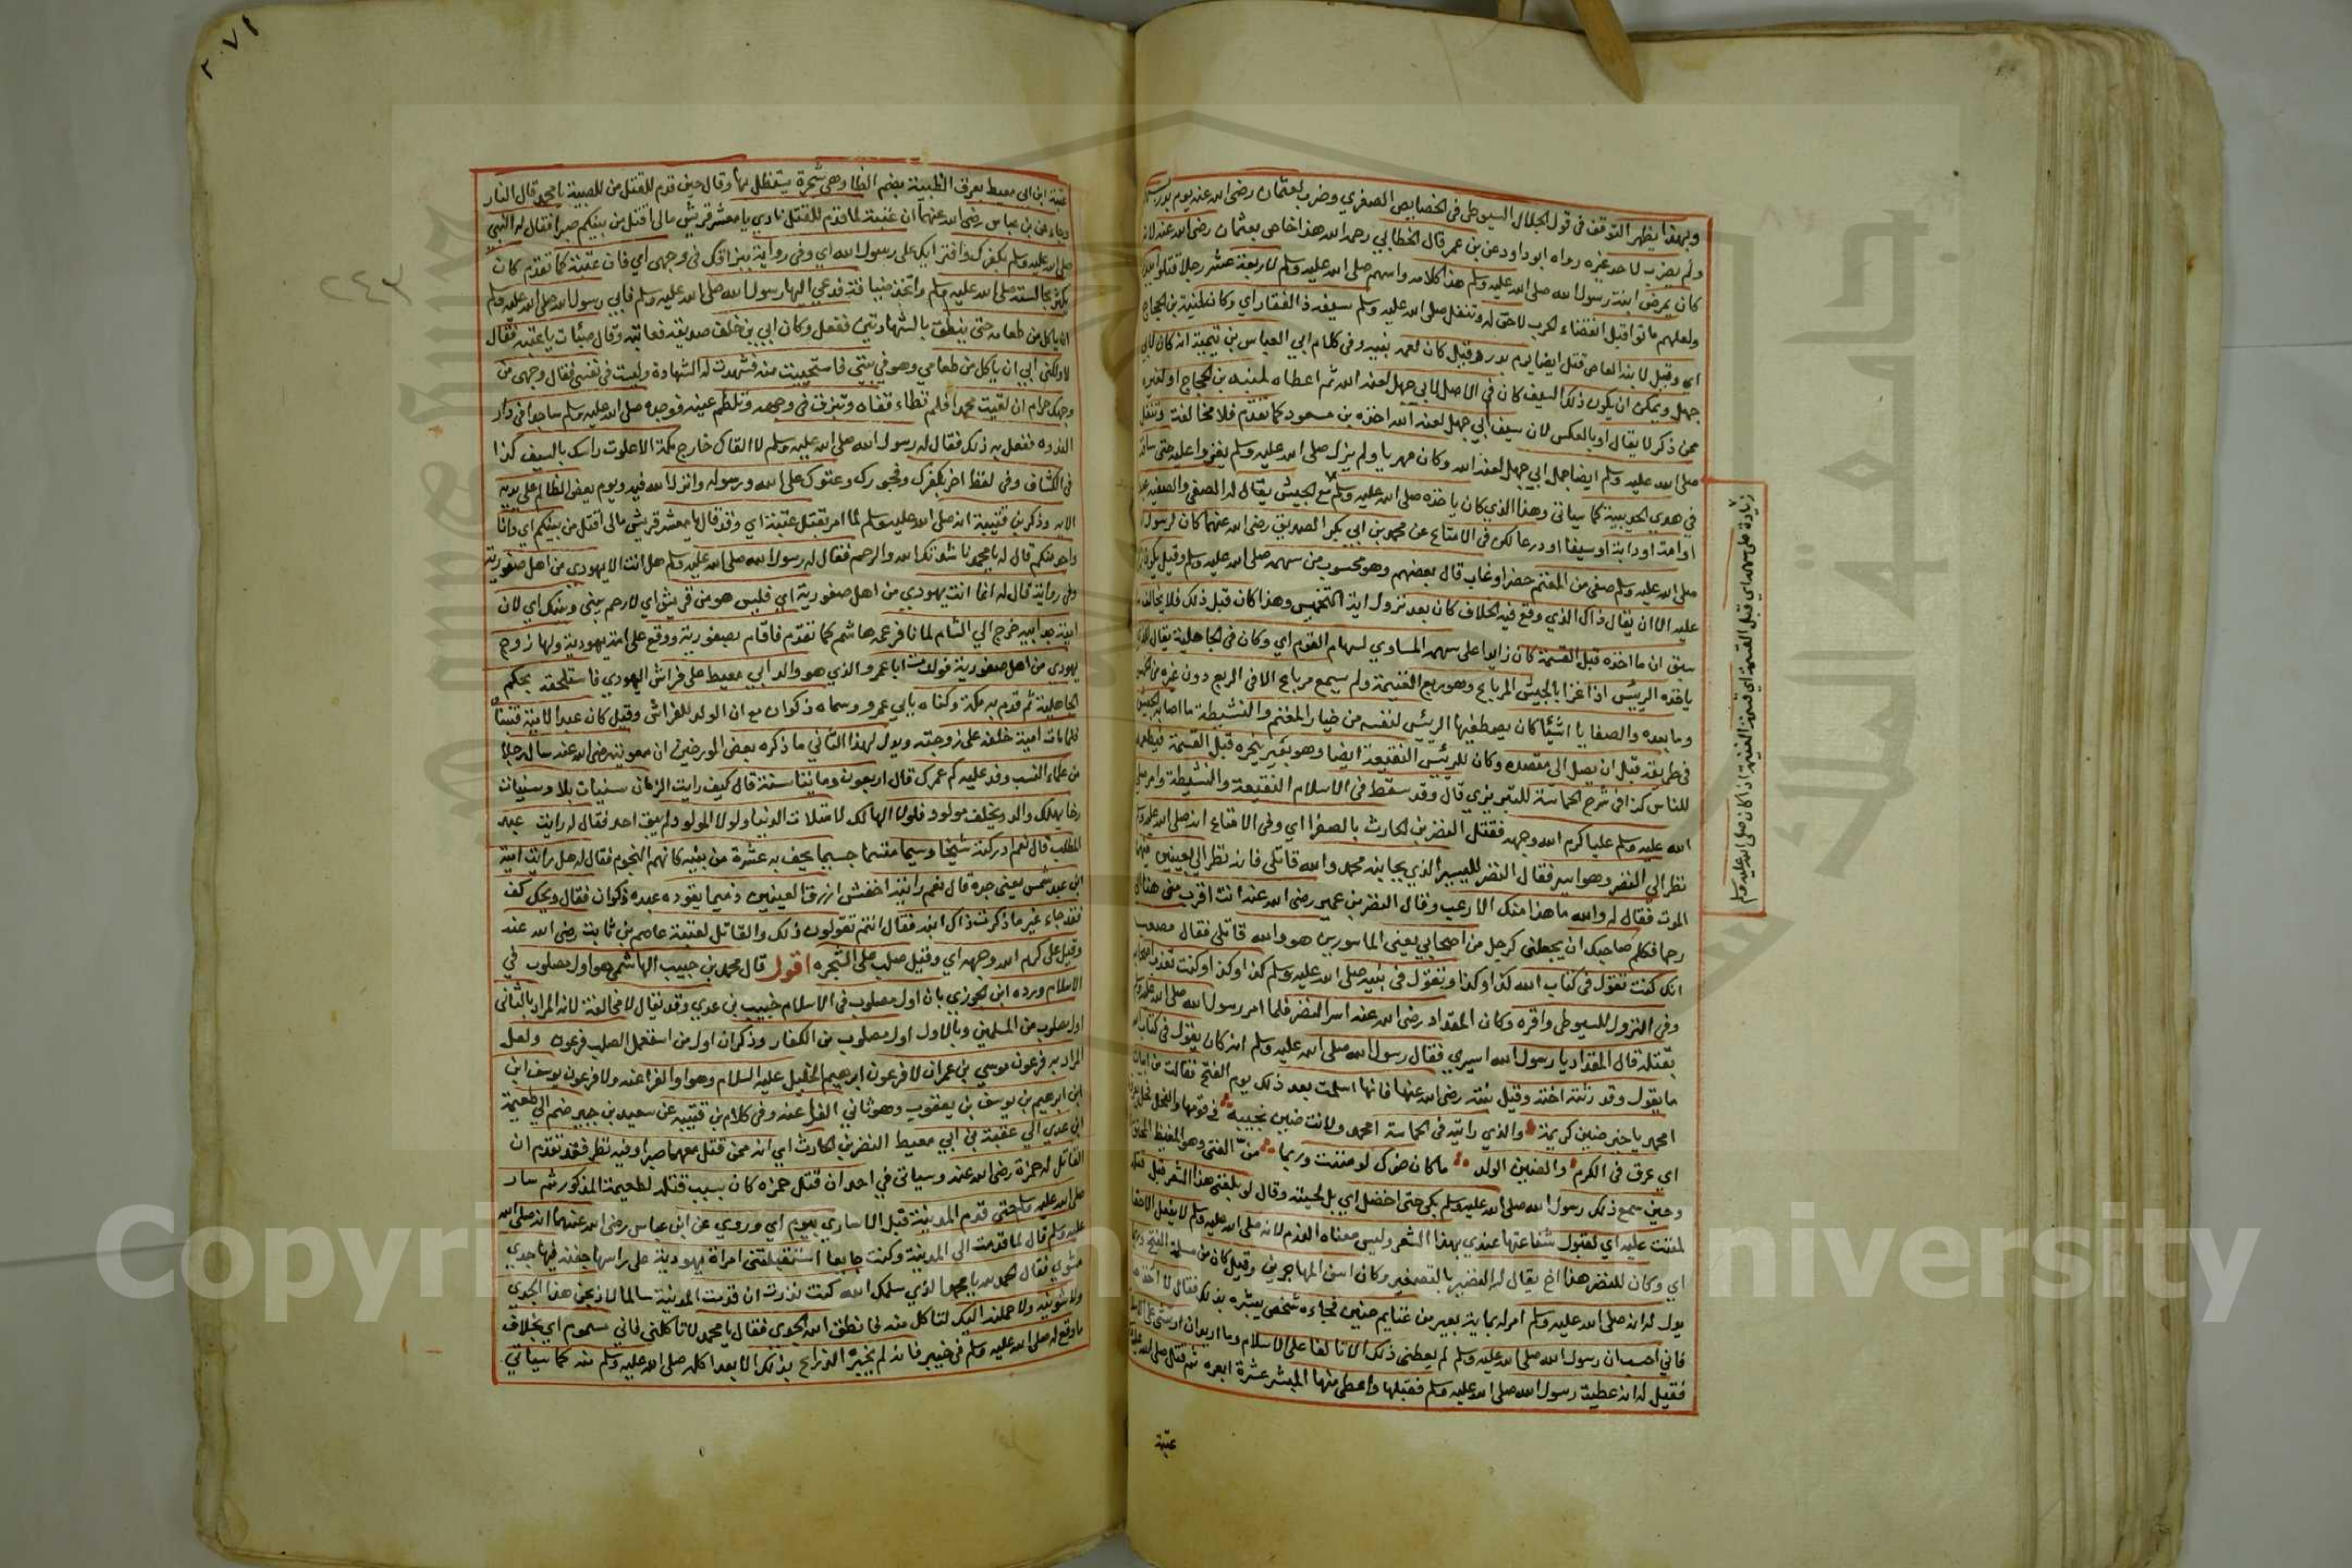 وبهذا يظهر التوقف في قول الجلال السيوطي في الخصايص الصغري وضرب لعثمان رضى الله عنه يوم بدر بسهم
ولم يضرب لاحد غيره رواه ابو داود عن بن عمر قال الخطابي رحمه الله هذا خاص بعثمان رضى الله عنه لانه
كان يمرض ابنة رسول الله صلى الله عليه وسلم هذا كلامه واسهم صلى الله عليه وسلم لاربعة عشر رجلا قتلوا ببدر
ولعلهم ماتوا قبل انقضاء الحرب لاحق له وتنفل صلى الله عليه وسلم سيفه ذا الفقار اي وكان لمنبه بن الحجاج
اي وقيل لابنه العاص قتل ايضا يوم بدر وقيل كان لعمه نبيه وفي كلام ابي العباس بن تيمية انه كان لابي
جهل ويمكن ان يكون ذلك السيف كان في الاصل لابي جهل لعنه الله ثم اعطاه لمنبه بن الحجاج او لغيره
ممن ذكر لا يقال او بالعكس لان سيف ابي جهل لعنه الله اخذه بن مسعود كما تقدم فلا مخالفة وتنفل
صلى الله عليه وسلم ايضا جمل ابي جهل لعنه الله وكان مهريا ولم يزل صلى الله عليه وسلم يغزوا عليه حتى ساقه
في هدي الحديبية كما سياتى وهذا الذي كان ياخذه صلى الله عليه وسلم مع الجيش يقال له الصفي والصفيه عبد
او امة او دابة او سيفا او درعا لكن في الامتاع عن محمد بن ابي بكر الصديق رضى الله عنهما كان لرسول الله
صلى الله عليه وسلم صفي من المغنم حضر او غاب قال بعضهم وهو محسوب من سهمه صلى الله عليه وسلم وقيل يكون
عليه الا ان يقال ذاك الذي وقع فيه الخلاف كان بعد نزول اية التخميس وهذا كان قبل ذلك فلا يخالف ما
سبق ان ما اخذه قبل القسمة كان زايدا على سهمه المساوي لسهام القوم اي وكان في الجاهلية يقال لما
ياخذه الرئيس اذا غزا بالجيش المرباع وهو ربع الغنيمة ولم يسمع مرباع الا في الربع دون غيره من
وما بعده والصفايا اشيا كان يصطفيها الرئيس لنفسه من خيار المغنم والنشيطة ما اصابه الجيش
في طريقه قبل ان يصل الى مقصده وكان للرئيس النقيعة ايضا وهو بعير ينحره قبل القسمة فيطعمه
للناس كذا في شرح الحماسة للتبريزي قال وقد سقط في الاسلام النقيعة والنشيطة وامر صلى
الله عليه وسلم عليا كرم الله وجهه فقتل النضر بن الحارث بالصفرا اي وفي الامتاع انه صلى الله عليه وسلم
نظر الي النضر وهو اسير فقال النضر للاسير الذي بجانبه محمد والله قاتلي فانه نظر الي بعينين فيهما
الموت فقال له والله ما هذا منك الا رعب وقال النضر بن عمير رضى الله عنه انت اقرب مني هنا
رحما فكلم صاحبك ان يجعلني كرجل من اصحابي يعني الماسورين هو والله قاتلي فقال مصعب
انك كنت تقول في كتاب الله كذا وكذا وتقول في نبيه صلى الله عليه وسلم كذا وكذا وكنت تعذب اصحابه
وفي النزول للسيوطي واقره وكان المقداد رضى الله عنه اسر النضر فلما امر رسول الله صلى الله عليه وسلم
بقتله قال المقداد يا رسول الله اسيري فقال رسول الله صلى الله عليه وسلم انه كان يقول في كتاب الله
ما يقول وقد رثته اخته وقيل بنته رضى الله عنها فانها اسلمت بعد ذلك يوم الفتح فقالت من ابيات
امحمد يا خير ضنين كريمة والذي رايته في الحماسة امحمد ولانت ضنين نجيبة في قومها والفحل فحل
اي عرق في الكرم والضنين الولد ما كان ضرك لو مننت وربما من الفتى وهو المغيظ المحنق
وحين سمع ذلك رسول الله صلى الله عليه وسلم بكي حتى اخضل اي بل لحيته وقال لو بلغني هذا الشعر قبل قتله
لمننت عليه اي لقبول شفاعتها عندي بهذا الشعر وليس معناه الندم لانه صلى الله عليه وسلم لا يفعل الا حقا
اي وكان للنضر هذا اخ يقال له النضير بالتصغير وكان اسن المهاجرين وقيل كان من مسلمة الفتح
يدل له انه صلى الله عليه وسلم امر له بماية بعير من غنايم حنين فجاءه شخص يبشره بذلك فقال لا اخذه
فاني احسب ان رسول الله صلى الله عليه وسلم لم يعطني ذلك الا تالفا على الاسلام وما اريد ان ارتشي على الاسلام
فقيل له انه عطية رسول الله صلى الله عليه وسلم فقبلها واعطى منها المبشر عشرة ابعره ثم قتل صلى الله عليه
عتبة
زيادة على سهمه اي قبل القسمة اي قسمة الغنيمة اذ كان صلى الله عليه وسلم
٢٠٧١
٢٤٣
عتبة ابن ابي معيط بعرق الظبية بضم الظا وهي شجرة يستظل بها وقال حين قدم للقتل من للصبية يا محمد قال النار
وجاء عن بن عباس رضى الله عنهما ان عتبة لما قدم للقتل نادي يا معشر قريش مالي اقتل من بينكم صبرا فقال له النبي
صلى الله عليه وسلم بكفرك وافترايك على رسول الله اي وفي رواية ببزاقك في وجهي اي فان عتبة كما تقدم كان
يكثر مجالسته صلى الله عليه وسلم واتخذ ضيافة فدعي اليها رسول الله صلى الله عليه وسلم فابي رسول الله صلى الله عليه وسلم
ان ياكل من طعامه حتى ينطق بالشهادتين ففعل وكان ابي بن خلف صديقه فعاتبه وقال صبات يا عتبة فقال
لا ولكن ابي ان ياكل من طعامي وهو في بيتي فاستحييت منه فشهدت له الشهادة وليست في نفسي فقال وجهي من
وجهك حرام ان لقيت محمدا فلم تطاء قفاه وتبزق في وجهه وتلطم عينه فوجده صلى الله عليه وسلم ساجدا في دار
الندوه ففعل به ذلك فقال له رسول الله صلى الله عليه وسلم لا القاك خارج مكة الا علوت راسك بالسيف كذا
في الكشاف وفي لفظ اخر بكفرك وفجورك وعتوك على الله ورسوله وانزل الله فيه ويوم يعض الظالم على يديه
الاية وذكر بن قتيبة انه صلى الله عليه وسلم لما امر بقتل عتبة اي وقد قال يا معشر قريش مالي اقتل من بينكم اي وانا
واحد منكم قال له يا محمد ناشدتك الله والرحم فقال له رسول الله صلى الله عليه وسلم هل انت الا يهودي من اهل صفورية
وفي رواية قال له انما انت يهودي من اهل صفورية اي فليس هو من قريش اي لا رحم بيني وبينك اي لان
امية جد ابيه خرج الي الشام لما نافر عمه هاشم كما تقدم فاقام بصفورية ووقع على امة يهودية ولها زوج
يهودي من اهل صفورية فولدت ابا عمرو الذي هو والد ابي معيط على فراش اليهودي فاستلحقه بحكم
الجاهلية ثم قدم به مكة وكناه بابي عمرو وسماه ذكوان مع ان الولد للفراش وقيل كان عبدا لامية فتبناه
فلما مات امية خلفه على زوجته ويدل لهذا الثاني ما ذكره بعض المورخين ان معوية رضى الله عنه سال رجلا
من علماء النسب وفد عليه كم عمرك قال اربعون وماينا سنة قال كيف رايت الزمان سنيات بلا وسنيات
رخا يهلك والد ويخلف مولود فلولا الهالك لامتلات الدنيا ولولا المولود لم يبق احد فقال له رايت عبد
المطلب قال نعم ادركته شيخا وسيما قسيما جسيما يحف به عشرة من بنيه كانهم النجوم فقال له هل رايت امية
ابن عبد شمس يعني جده قال نعم رايته اخفش ازرق العينين ذميما يقوده عبده ذكوان فقال ويحك كف
فقد جاء غير ما ذكرت ذاك ابنه فقال انتم تقولون ذلك والقاتل لعتبة عاصم بن ثابت رضى الله عنه
وقيل على كرم الله وجهه اي وقيل صلب على الشجره اقول قال محمد بن حبيب الهاشمي هو اول مصلوب في
الاسلام ورده ابن الجوزي بان اول مصلوب في الاسلام خبيب بن عدي وقد يقال لا مخالفة لان المراد بالثاني
اول مصلوب من المسلمين وبالاول اول مصلوب من الكفار وذكر ان اول من استعمل الصلب فرعون ولعل
المراد به فرعون موسي بن عمران لا فرعون ابرهيم الخليل عليه السلام وهو اول الفراعنه ولا فرعون يوسف ابن
ابن ابرهيم بن يوسف بن يعقوب وهو ثاني الفراعنه وفي كلام بن قتيبه عن سعيد بن جبير ضم الي طعيمة
ابن عدي الي عقبة بن ابي معيط النضر بن الحارث اي انه ممن قتل معهما صبرا وفيه نظر فقد تقدم ان
القاتل له حمزة رضى الله عنه وسياتي في احد ان قتل حمزه كان بسبب قتله لطعيمة المذكور ثم سار
صلى الله عليه وسلم حتى قدم المدينة قبل الاساري بيوم اي وروي عن ابن عباس رضى الله عنهما انه صلى الله
عليه وسلم قال لما قدمت الى المدينة وكنت جايعا استقبلتني امراة يهودية على راسها جفنة فيها جدي
مشوي فقالت الحمد لله يا محمد الذي سلمك الله كنت نذرت ان قدمت المدينة سالما لاذبحن هذا الجدي
ولاشوينه ولاحملنه اليك لتاكل منه فانطق الله الجدي فقال يا محمد لا تاكلني فاني مسموم اي بخلاف
ما وقع له صلى الله عليه وسلم في خيبر فانه لم يخبره الذراع بذلك الا بعد اكله صلى الله عليه وسلم منه كما سياتي